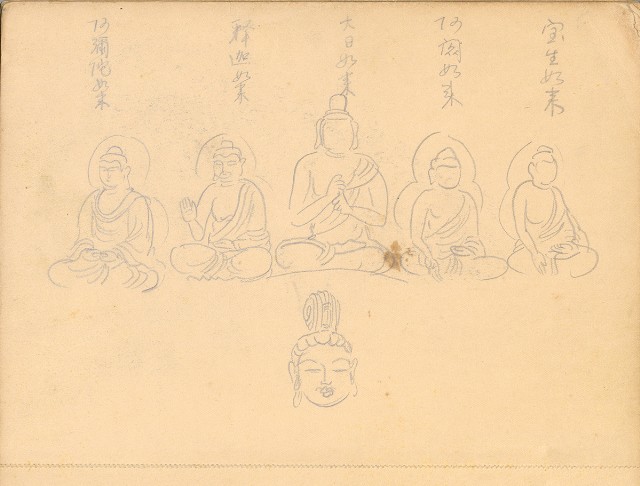 宝生如来
阿閦如来
大日如来
釋迦如来
阿彌陀如来